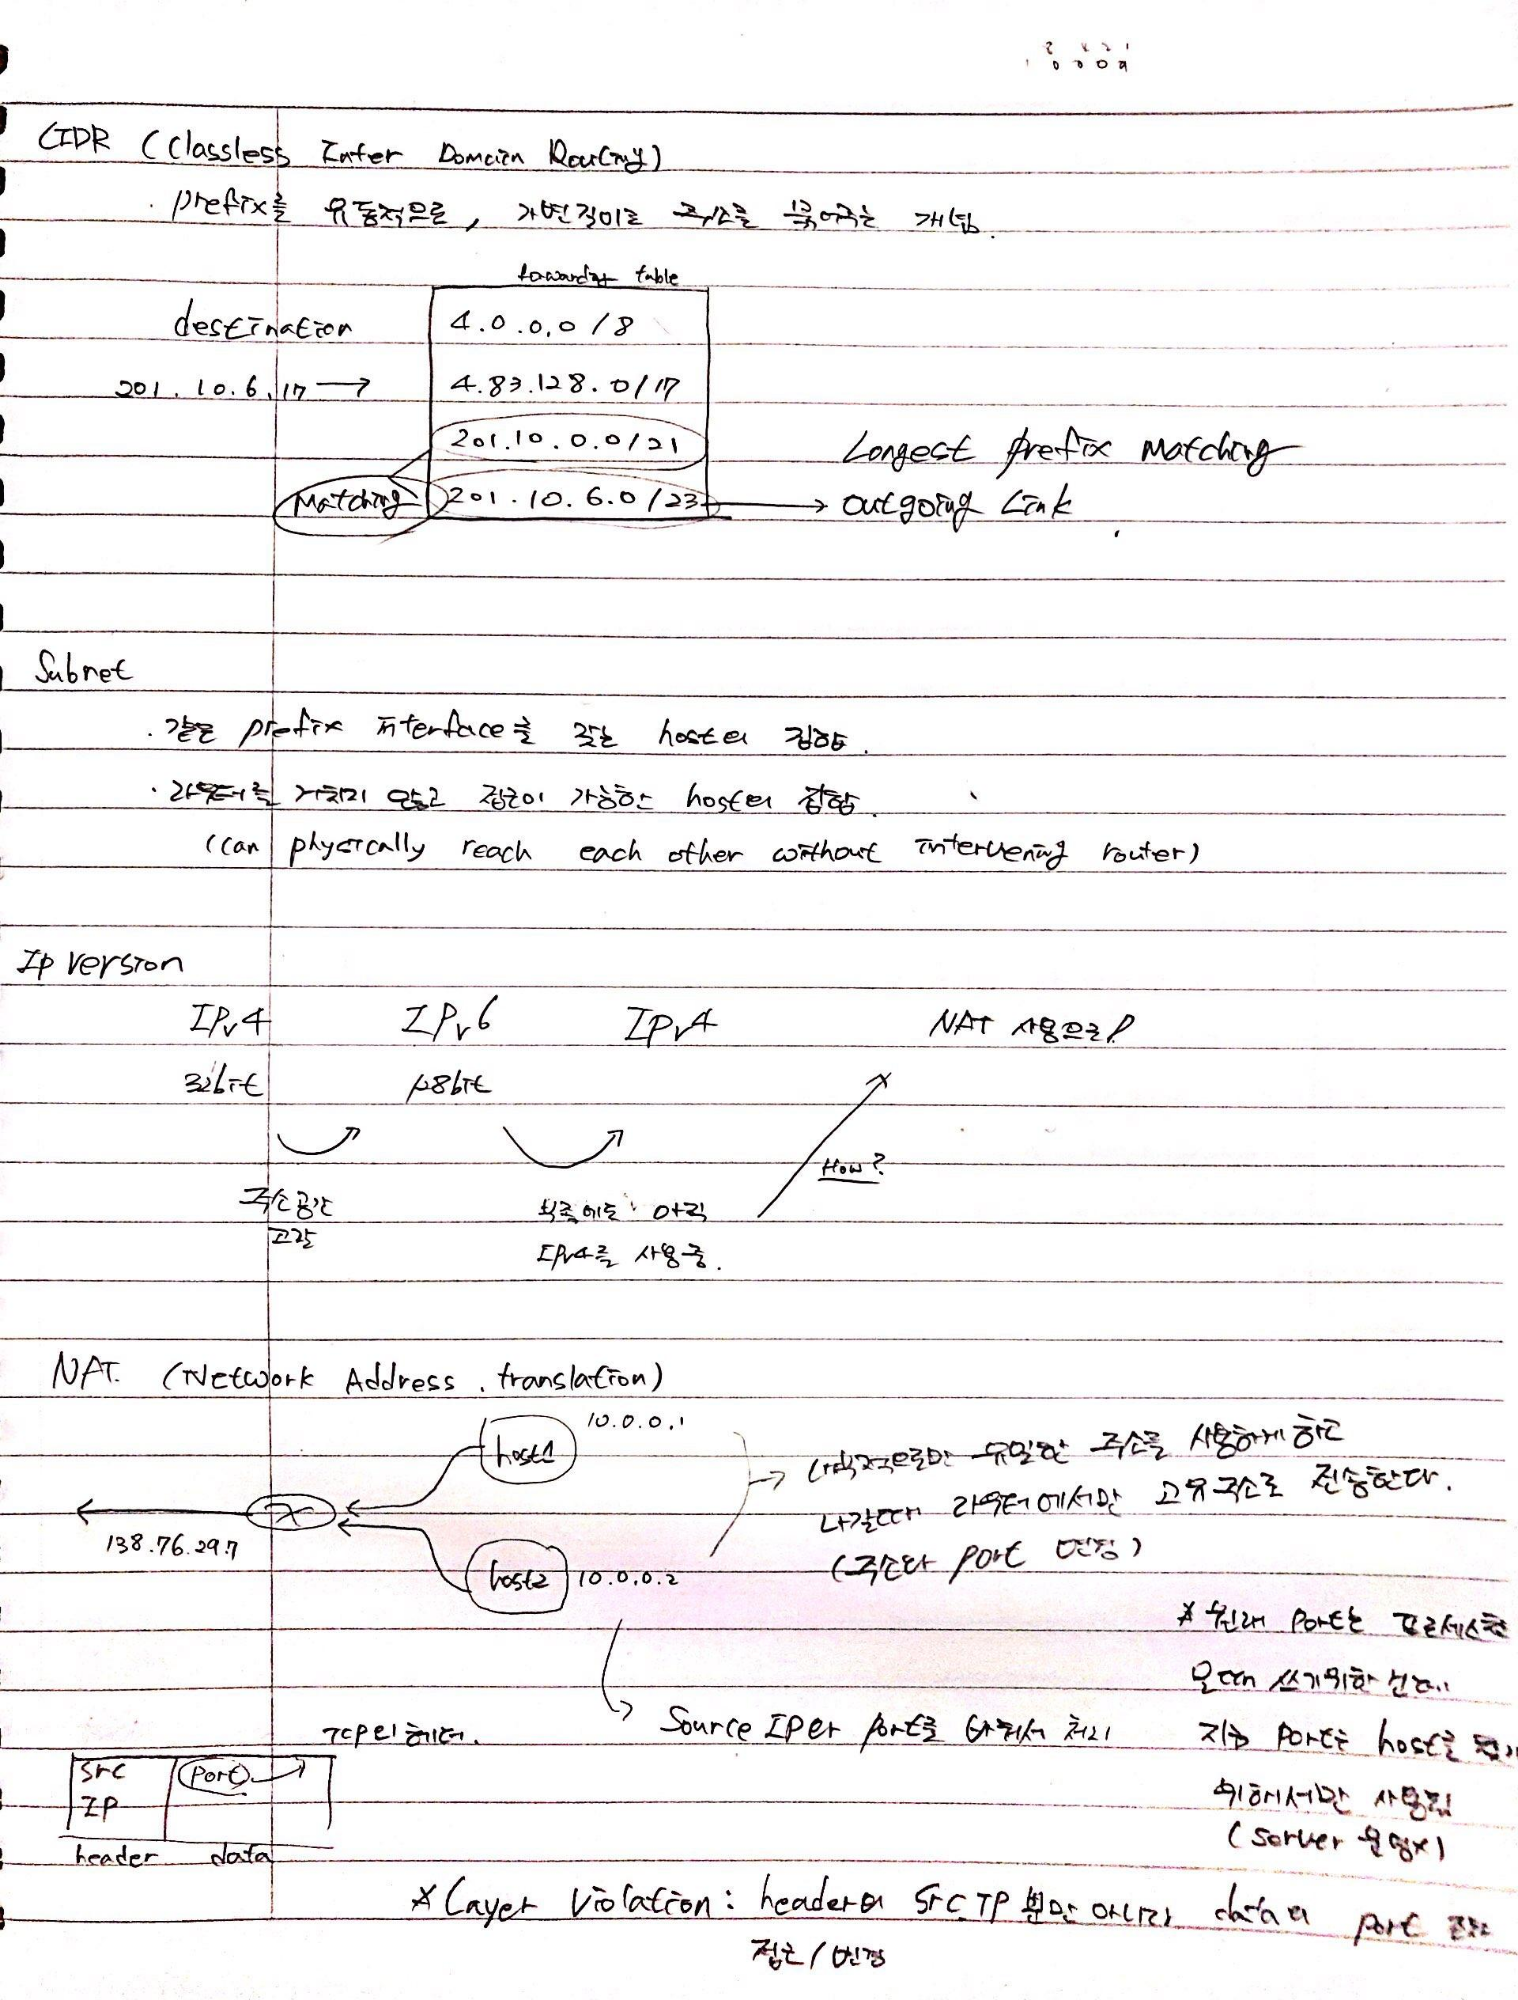 8 4 2 1
1 0 0 0 0
CIDR (Classless Inter Domain Routing)
· prefix를 유동적으로, 가변길이로 주소를 묶어주는 개념.
forwarding table
destination
4.0.0.0/8
201.10.6.17 →
4.83.128.0/17
201.10.0.0/21
Longest prefix Matching
Matching
201.10.6.0/23
→ outgoing Link
Subnet
· 같은 prefix interface를 갖는 host의 집합.
· 라우터를 거치지 않고 접근이 가능한 host의 집합.
(can physically reach each other without intervening router)
Ip version
IPv4 IPv6 IPv4 NAT 사용으로!
32bit 128bit
How?
주소공간 고갈
최근에도 아직
IPv4를 사용중.
NAT. (Network Address. translation)
host1 10.0.0.1
→ 내부적으로만 유일한 주소를 사용하게 하고
나갈때 라우터에서만 고유주소로 전송한다.
(주소와 port 변경)
138.76.29.7
host2 10.0.0.2
* 원래 port는 프로세스를
올때 쓰기위한 건데..
→ Source IP와 port를 바꿔서 처리
지금 port는 host를
위해서만 사용됨
(server 운영x)
TCP의 헤더.
src IP port
header data
* Layer Violation: header의 src IP 뿐만 아니라 data의 port 또한
접근/변경